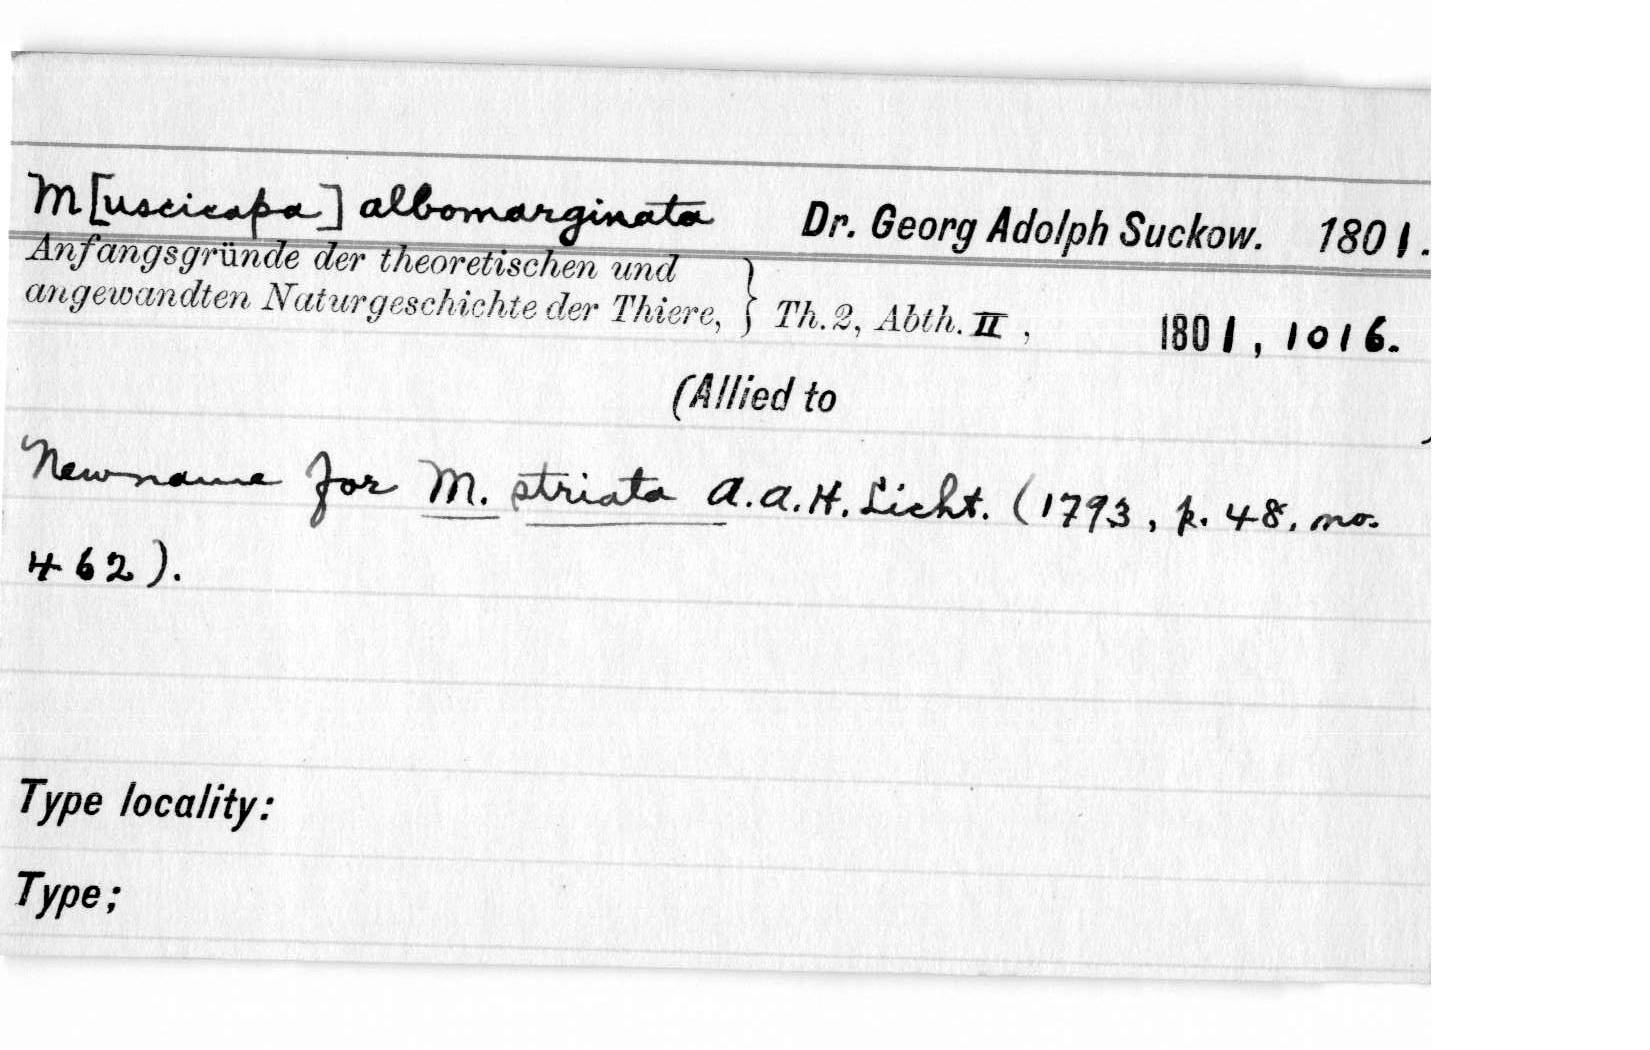 M[uscicapa] albomarginata Dr. Georg Adolph Suckow. 1801.
Anfangsgründe der theoretischen und
angewandten Naturgeschichte der Thiere, } Th. 2, Abth. II, 1801, 1016.
(Allied to )
New name for M. striata A.A.H. Licht. (1793, p. 48, no.
462).
Type locality:
Type;